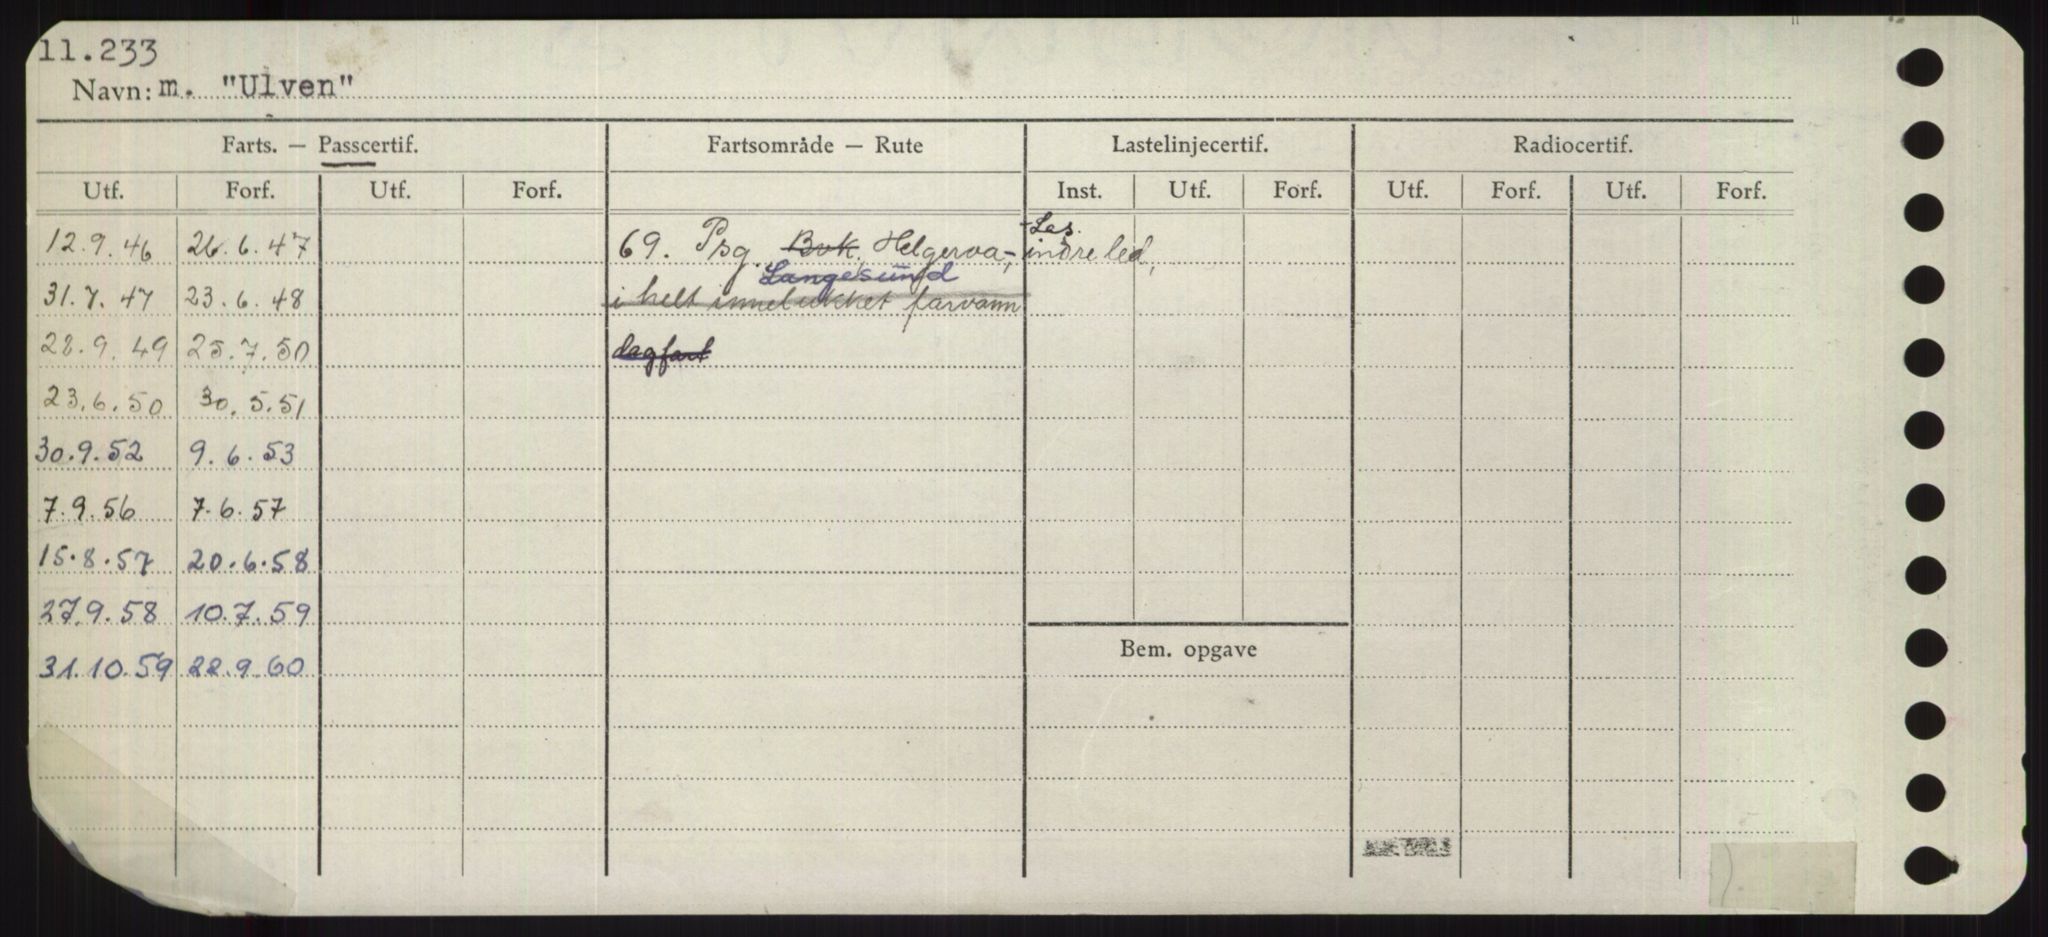 11.233
Navn: m. "Ulven"
Farts. — Passcertif. Fartsområde — Rute Lastelinjecertif. Radiocertif.
Utf. Forf. Utf. Forf. Inst. Utf. Forf. Utf. Forf. Utf. Forf.
-Las.
12.9.46 26.6.47 69. Psg. Bvk. Helgeroa-, indre led,
Langesund
31.7.47 23.6.48 i helt innelukket farvann
28.9.49 25.7.50 dagfart
23.6.50 30.5.51
30.9.52 9.6.53
7.9.56 7.6.57
15.8.57 20.6.58
27.9.58 10.7.59
Bem. opgave
31.10.59 22.9.60